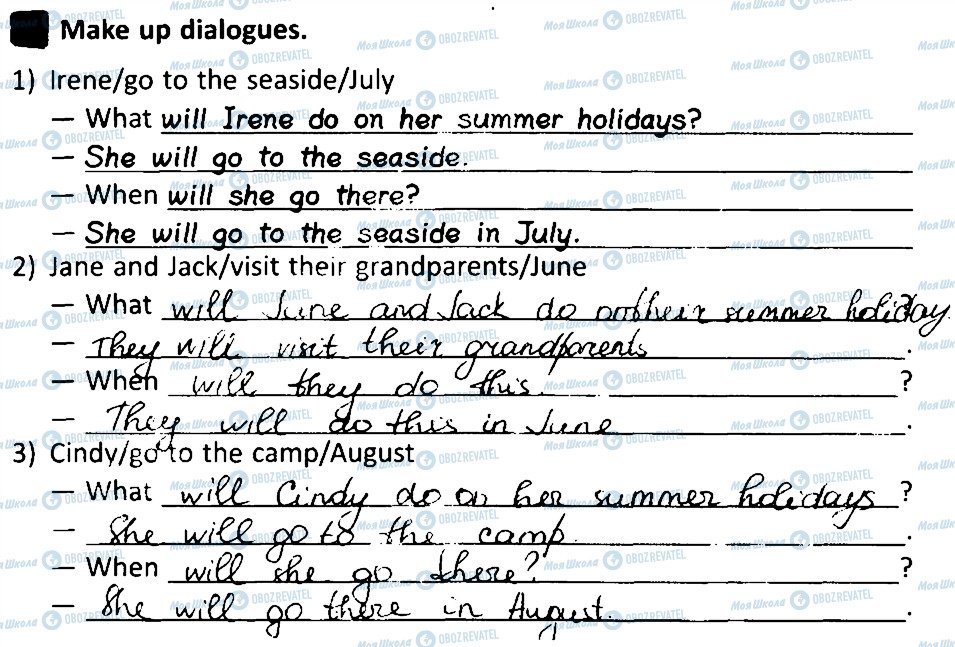 Make up dialogues.
1) Irene/go to the seaside/July
– What will Irene do on her summer holidays?
– She will go to the seaside.
– When will she go there?
– She will go to the seaside in July.
2) Jane and Jack/visit their grandparents/June
– What will June and Jack do on their summer holiday?
– They will visit their grandparents.
– When will they do this. ?
– They will do this in June.
3) Cindy/go to the camp/August
– What will Cindy do on her summer holidays ?
– She will go to the camp.
– When will she go there? ?
– She will go there in August. .
Моя Школа OBOZREVATEL